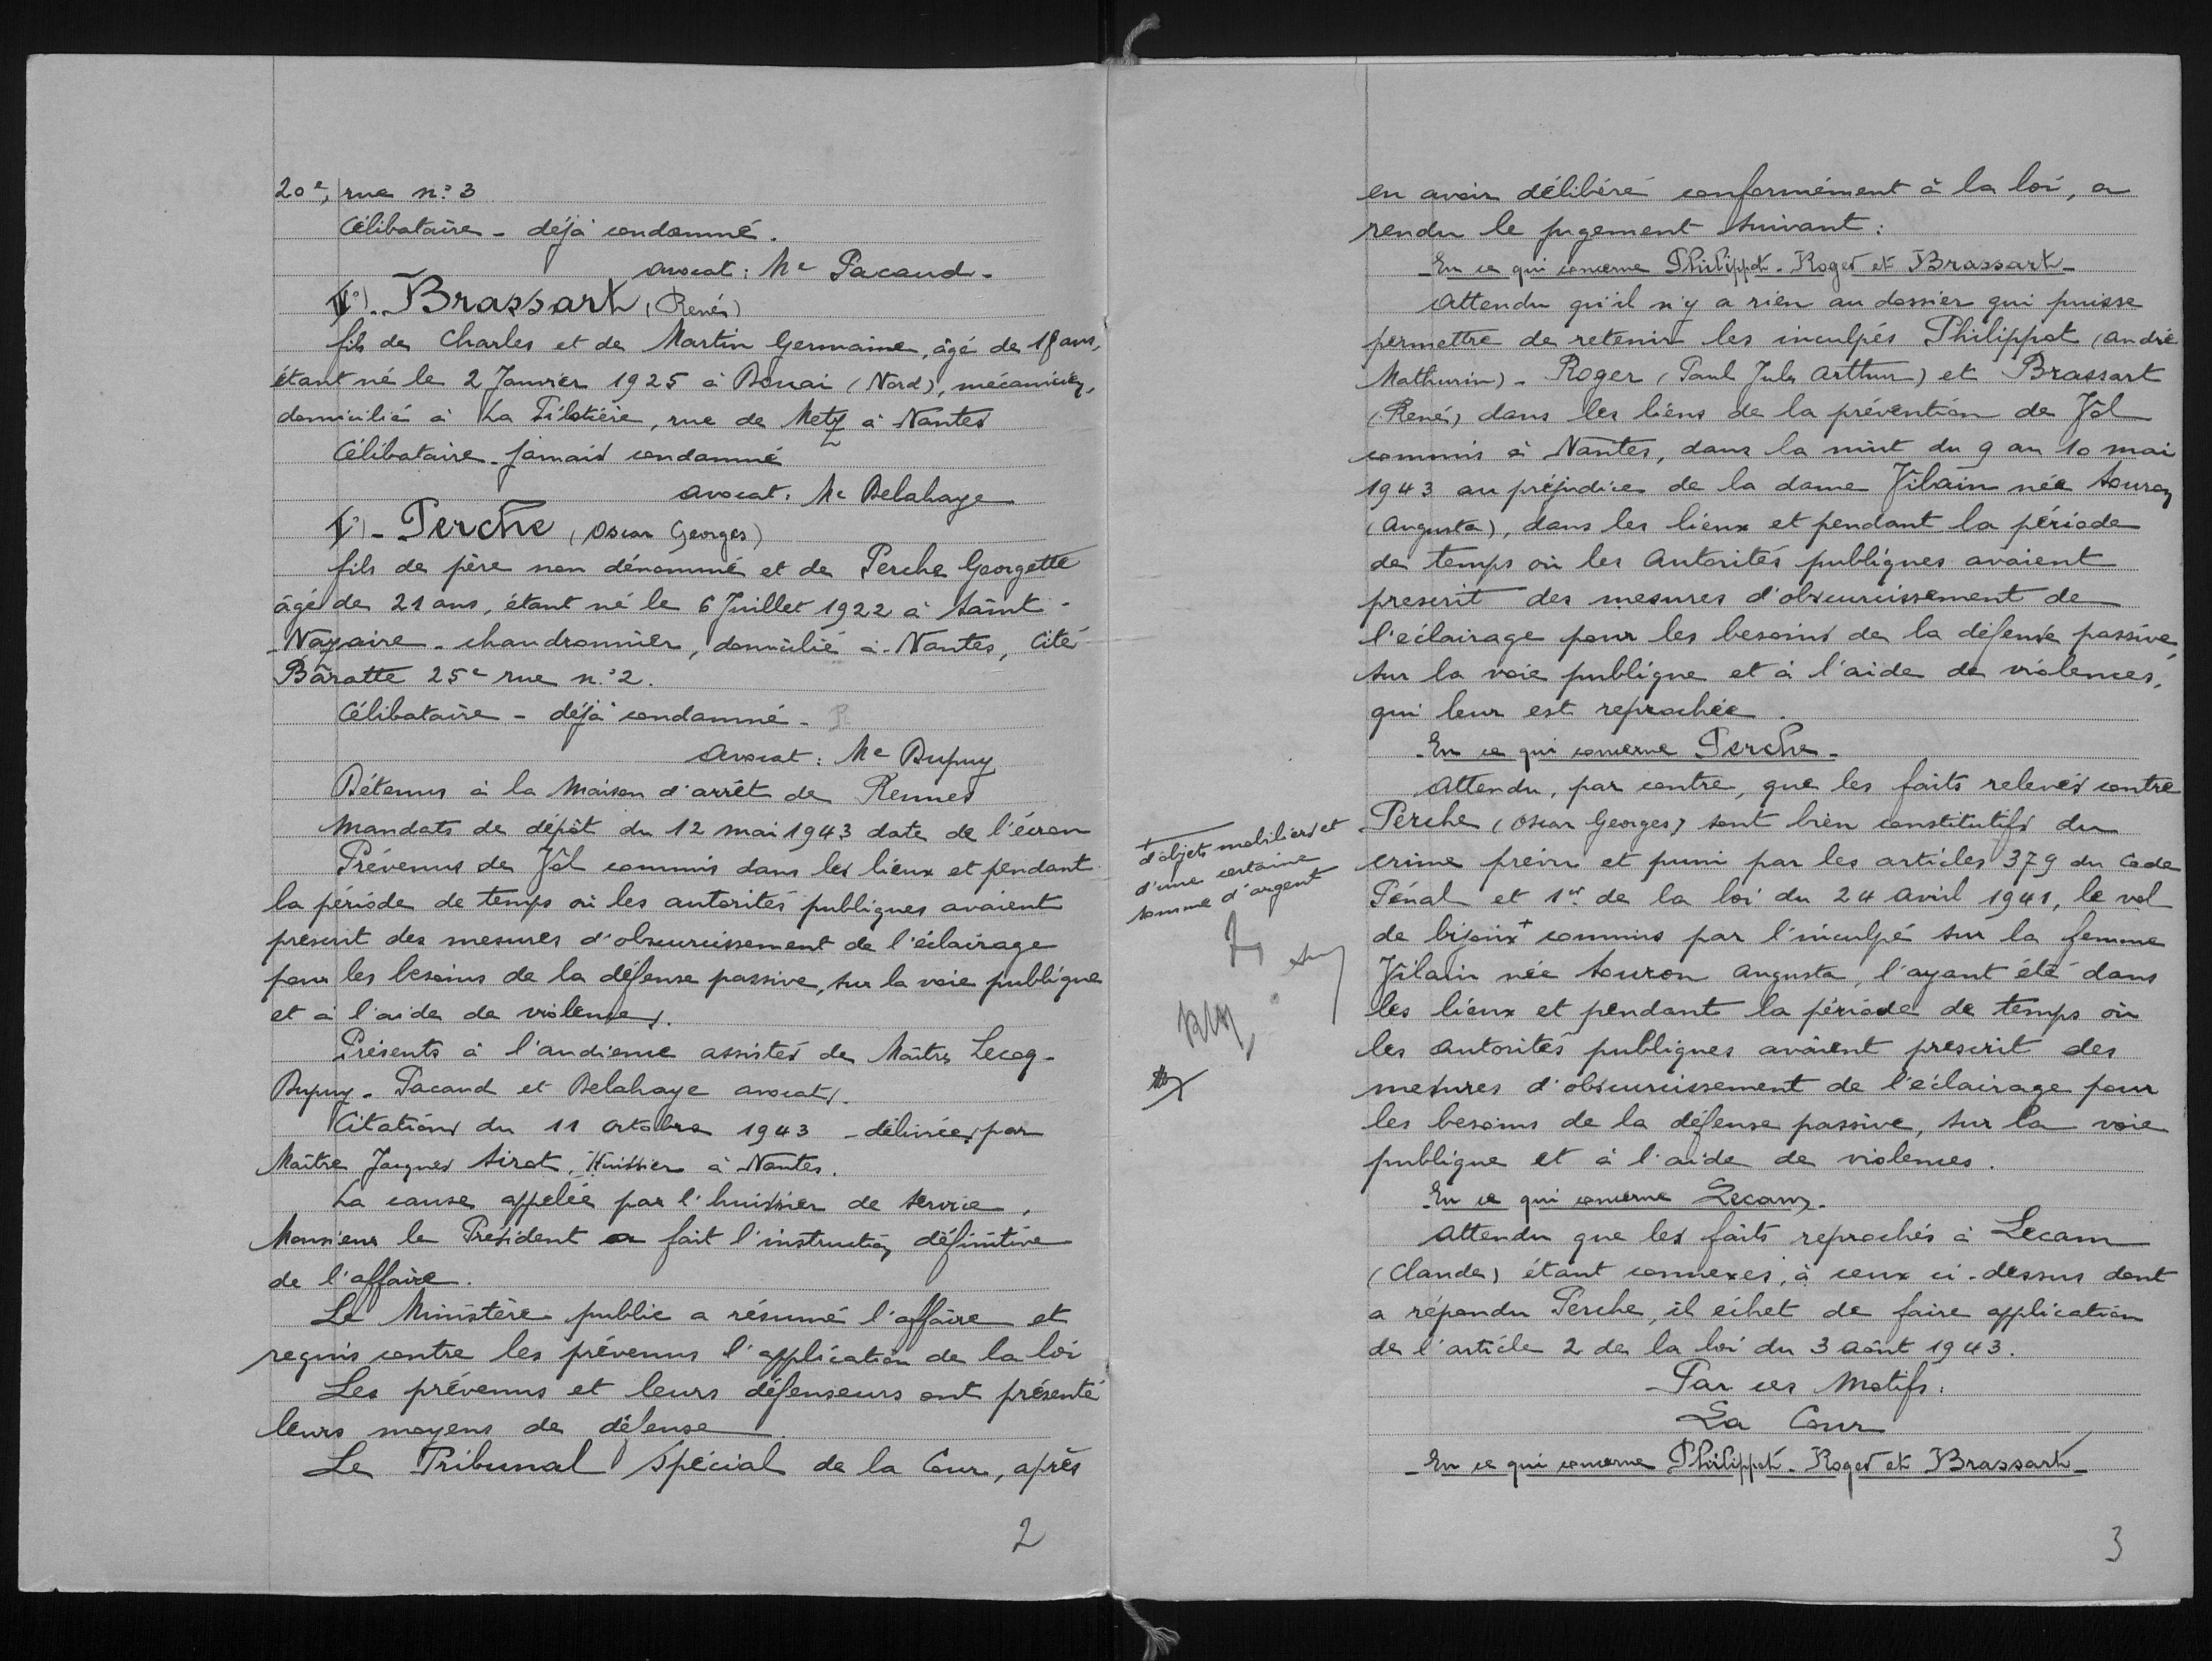 20e, rue n° 3
Célibataire - déjà condamné.
avocat : Me Pacaud -
IV°) - Brassart (René)
fils de Charles et de Martin Germaine, âgé de 18 ans,
étant né le 2 Janvier 1925 à Douai (Nord), mécanicien,
domicilié à La Pilotière, rue de Metz à Nantes
Célibataire - jamais condamné
avocat : Me Delahaye
V°) - Perche (Oscar Georges)
fils de père non dénommé et de Perche Georgette
âgé de 21 ans, étant né le 6 Juillet 1922 à Saint -
- Nazaire - chaudronnier, domicilié à Nantes, Cité
Baratte 25e rue n° 2.
Célibataire - déjà condamné -
avocat : Me Dupuy
Détenus à la Maison d'arrêt de Rennes
Mandats de dépôt du 12 mai 1943 date de l'écrou
Prévenus de Vol commis dans les lieux et pendant
la période de temps où les autorités publiques avaient
prescrit des mesures d'obscurcissement de l'éclairage
pour les besoins de la défense passive, sur la voie publique
et à l'aide de violences.
Présents à l'audience assistés de Maîtres Lecoq -
Dupuy - Pacaud et Delahaye avocats.
Citations du 11 octobre 1943 - délivrées par
Maître Jacques Sirot, Huissier à Nantes.
La cause appelée par l'huissier de service,
Monsieur le Président a fait l'instruction définitive
de l'affaire.
Le Ministère public a résumé l'affaire et
requis contre les prévenus l'application de la loi
Les prévenus et leurs défenseurs ont présenté
leurs moyens de défense.
Le Tribunal Spécial de la Cour, après
2
en avoir délibéré conformément à la loi, a
rendu le jugement suivant :
- En ce qui concerne Philippot - Roger et Brassart -
Attendu qu'il n'y a rien au dossier qui puisse
permettre de retenir les inculpés Philippot (André
Mathurin) - Roger (Paul Jules Arthur) et Brassart
(René) dans les liens de la prévention de Vol
commis à Nantes, dans la nuit du 9 au 10 mai
1943 au préjudice de la dame Vilain née Souron
(Augusta), dans les lieux et pendant la période
de temps où les Autorités publiques avaient
prescrit des mesures d'obscurcissement de
l'éclairage pour les besoins de la défense passive,
sur la voie publique et à l'aide de violences,
qui leur est reprochée.
- En ce qui concerne Perche -
Attendu, par contre, que les faits relevés contre
Perche (Oscar Georges) sont bien constitutifs du
crime prévu et puni par les articles 379 du Code
Pénal et 1er de la loi du 24 avril 1941, le vol
de bijoux + commis par l'inculpé sur la femme
Vilain née Souron Augusta, l'ayant été dans
les lieux et pendant la période de temps où
les Autorités publiques avaient prescrit des
mesures d'obscurcissement de l'éclairage pour
les besoins de la défense passive, sur la voie
publique et à l'aide de violences.
- En ce qui concerne Lecam -
Attendu que les faits reprochés à Lecam
(Claude) étant connexes, à ceux ci-dessus dont
a répondu Perche, il échet de faire application
de l'article 2 de la loi du 3 août 1943.
Par ces Motifs :
La Cour
- En ce qui concerne Philippot - Roger et Brassart -
+ d'objets mobiliers et
d'une certaine
somme d'argent
3